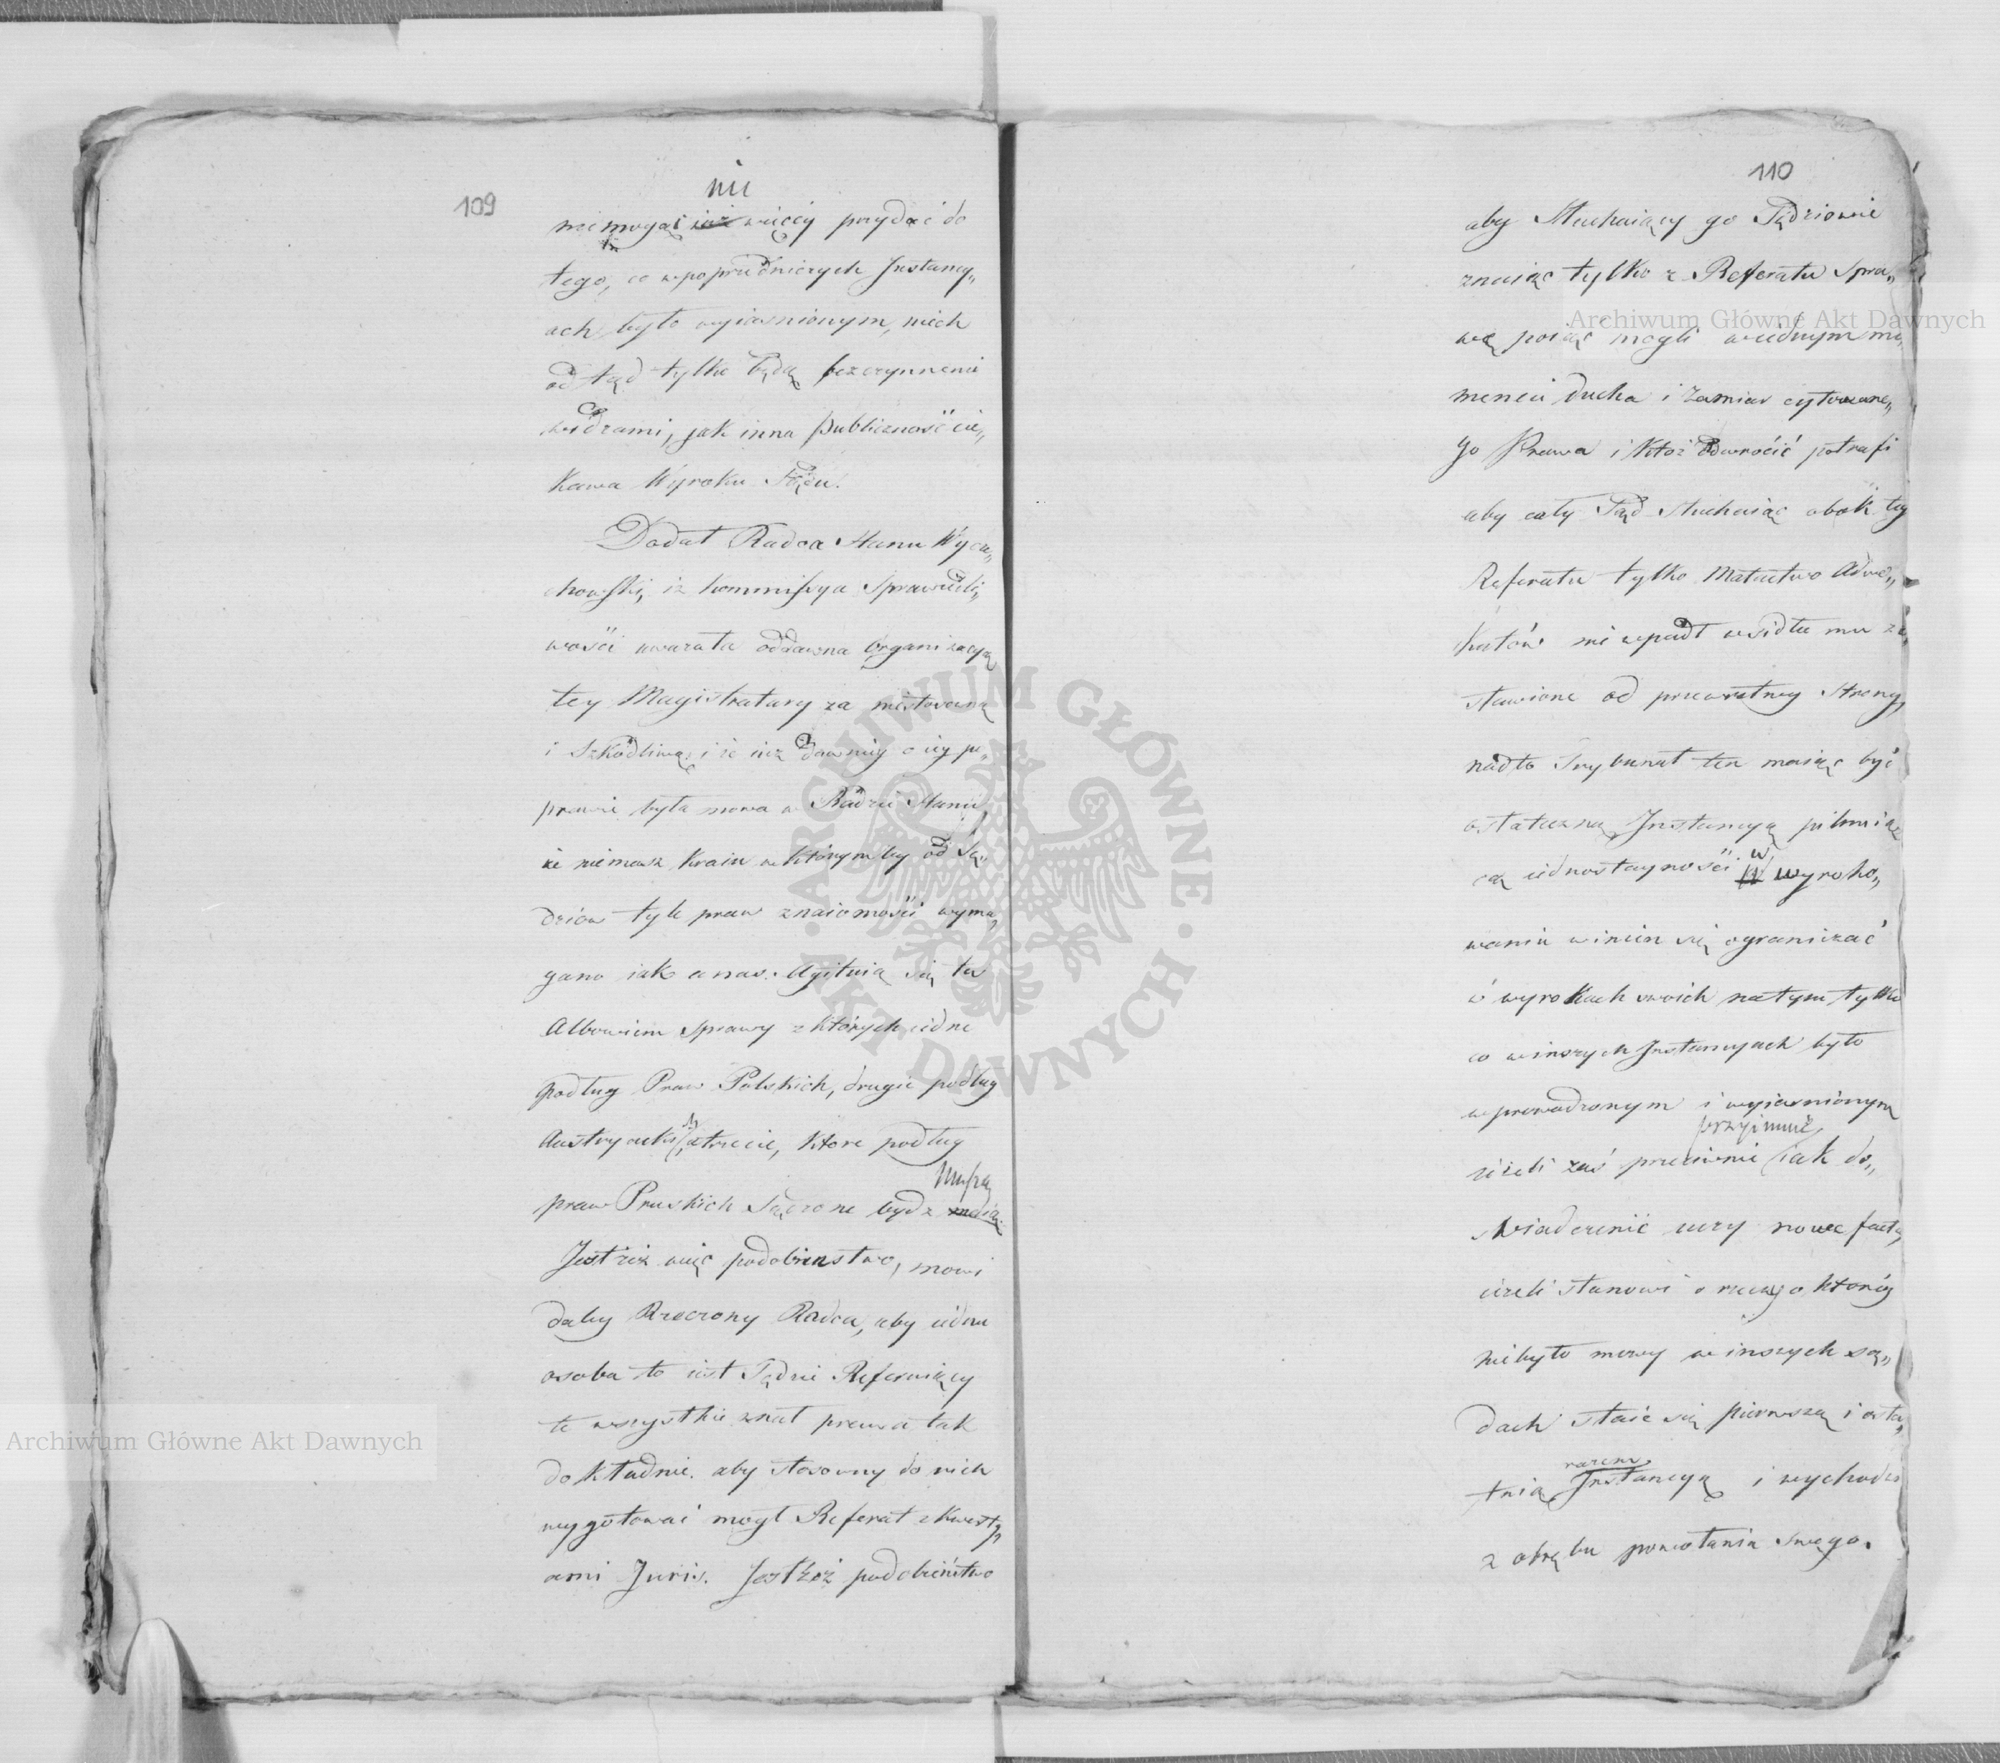 109
nic
nie mogąc już więcéy przydać do
tego, co w poprzedniczych Instancy„
ach było wyiasnionym, niech
odtąd tylko będą bezczynnemi
widzami, jak inna publiczność cie„
kawa Wyroku Sądu.
Dodał Radca Stanu Wycze„
chowski, iż Kommissya Sprawiedli„
wości uważała oddawna organizacyą
tey Magistratury za niestosowną
i szkodliwą, i że iuż dawniey o iey po„
prawie była mowa w Radzie Stanu,
że niemasz kraiu w którymby od Sę„
dziów tyle praw znaiomości wyma„
gano iak u nas. Agituią się tu
Albowiem sprawy z których iedne
podług Praw Polskich, drugie podług
Austryackich, a trzecie, które podług
muszą
praw Pruskich sądzone bydz maią.
Jestżeż więc podobieństwo, mówi
daley Rzeczony Radca, aby iedna
osoba to iest Sędzia Referuiący
te wszystkie znał prawa tak
dokładnie, aby stosowny do nich
wygotować mógł Referat z kwesty„
ami Juris. Jestżeż podobieństwo
110
aby słuchaiący go Sędziowie
znaiąc tylko z Referatu spra„
wę poiąć mogli w iednym mo„
mencie ducha i zamiar cytowane„
go Prawa i któż odwrócić potrafi
aby cały Sąd słuchaiąc obok tey
Referatu tylko Matactwo Adwo„
katów nie wpadł w sidła mu za„
stawione od przewrotney strony,
nadto Trybunał ten maiąc być
ostateczną Instancyą pilnuią„
cą iednostayności w
wyroko„
waniu winien się ograniczać
w wyrokach swoich na tym tylko
co w inszych Instancyach było
wprowadzonym i wyiasnionym
przyimuie,
ieżeli zaś przeciwnie iak do„
świadczenie uczy nowe facta,
ieżeli stanowi o rzeczy o któréy
niebyło mowy w inszych są„
dach staie się pierwszą i osta„
razem
tnią Instancyą i wychodzi
z obrębu powołania swego.
Archiwum Główne Akt Dawnych
Archiwum Główne Akt Dawnych
· ARCHIWUM GŁÓWNE · AKT DAWNYCH